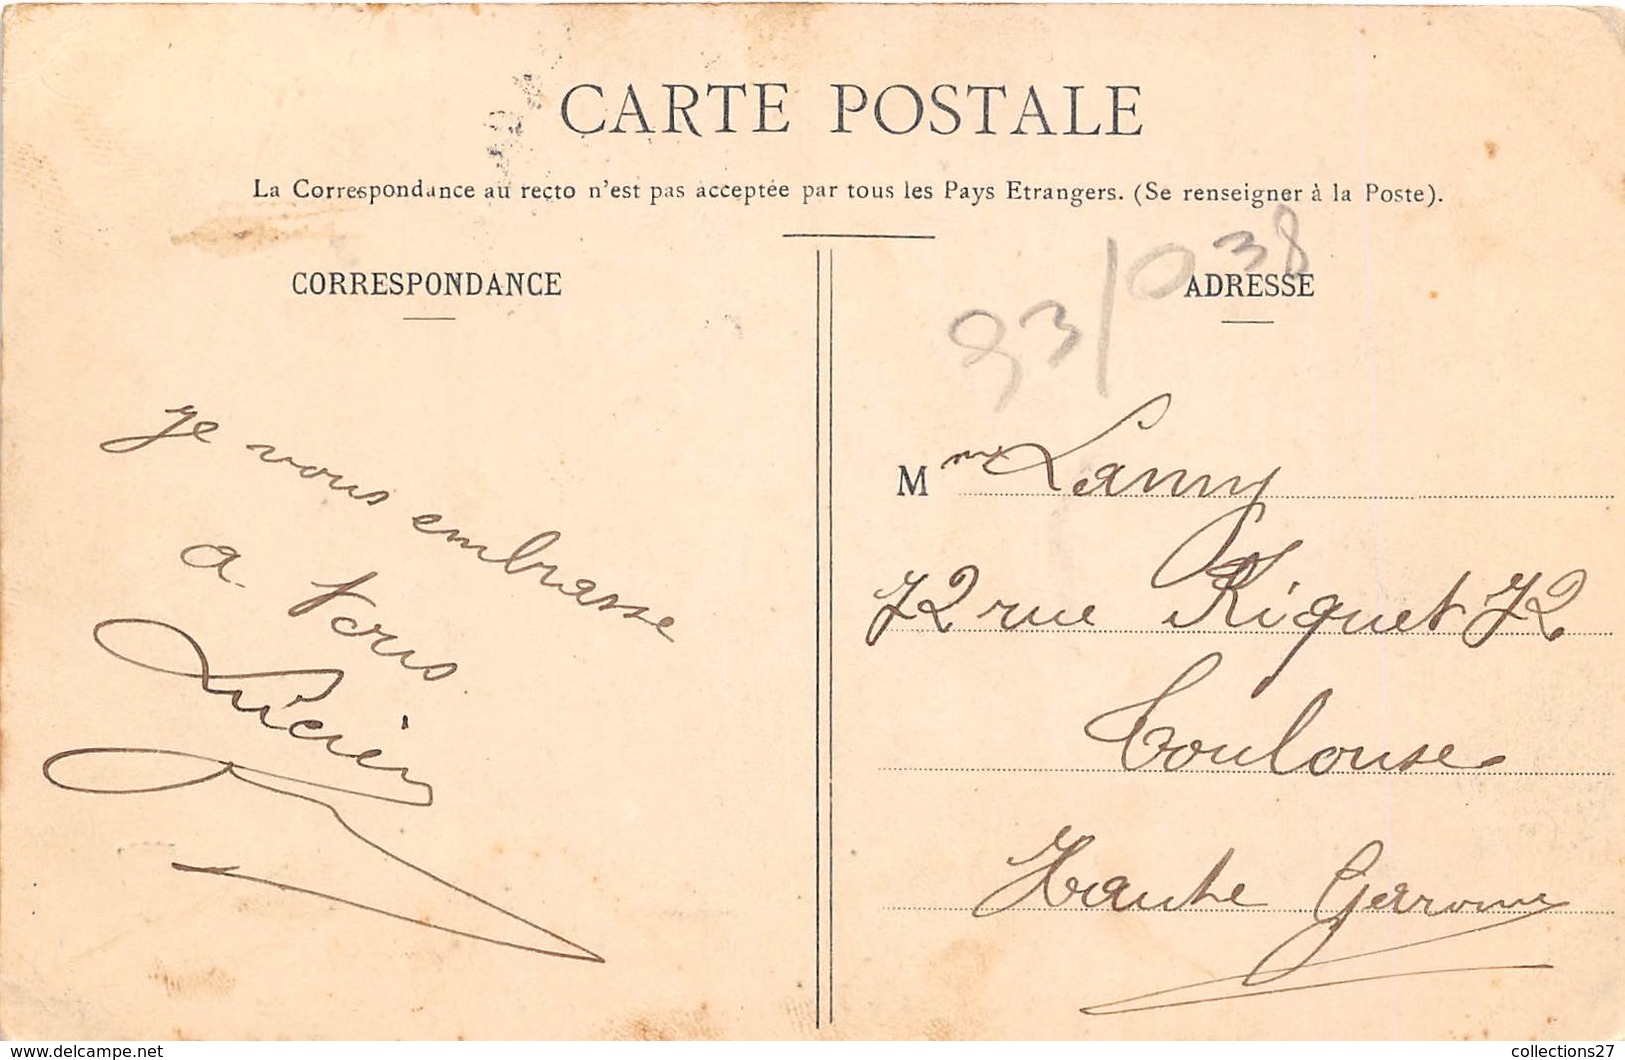 CARTE POSTALE
La Correspondance au recto n'est pas acceptée par tous les Pays Etrangers. (Se renseigner à la Poste).
CORRESPONDANCE
je vous embrasse
a tous
Lucien
93/038
ADRESSE
Mme Lanny
72 rue Riquet 72
Toulouse
Haute Garonne
delcampe.net
collections27